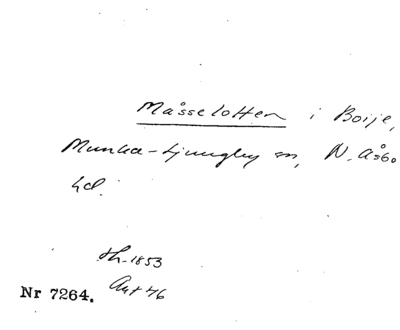 Måsselotten i Boije,
Munka-Ljungby sn, N. Åsbo
hd.
th. 1853
Avt 46
Nr 7264.